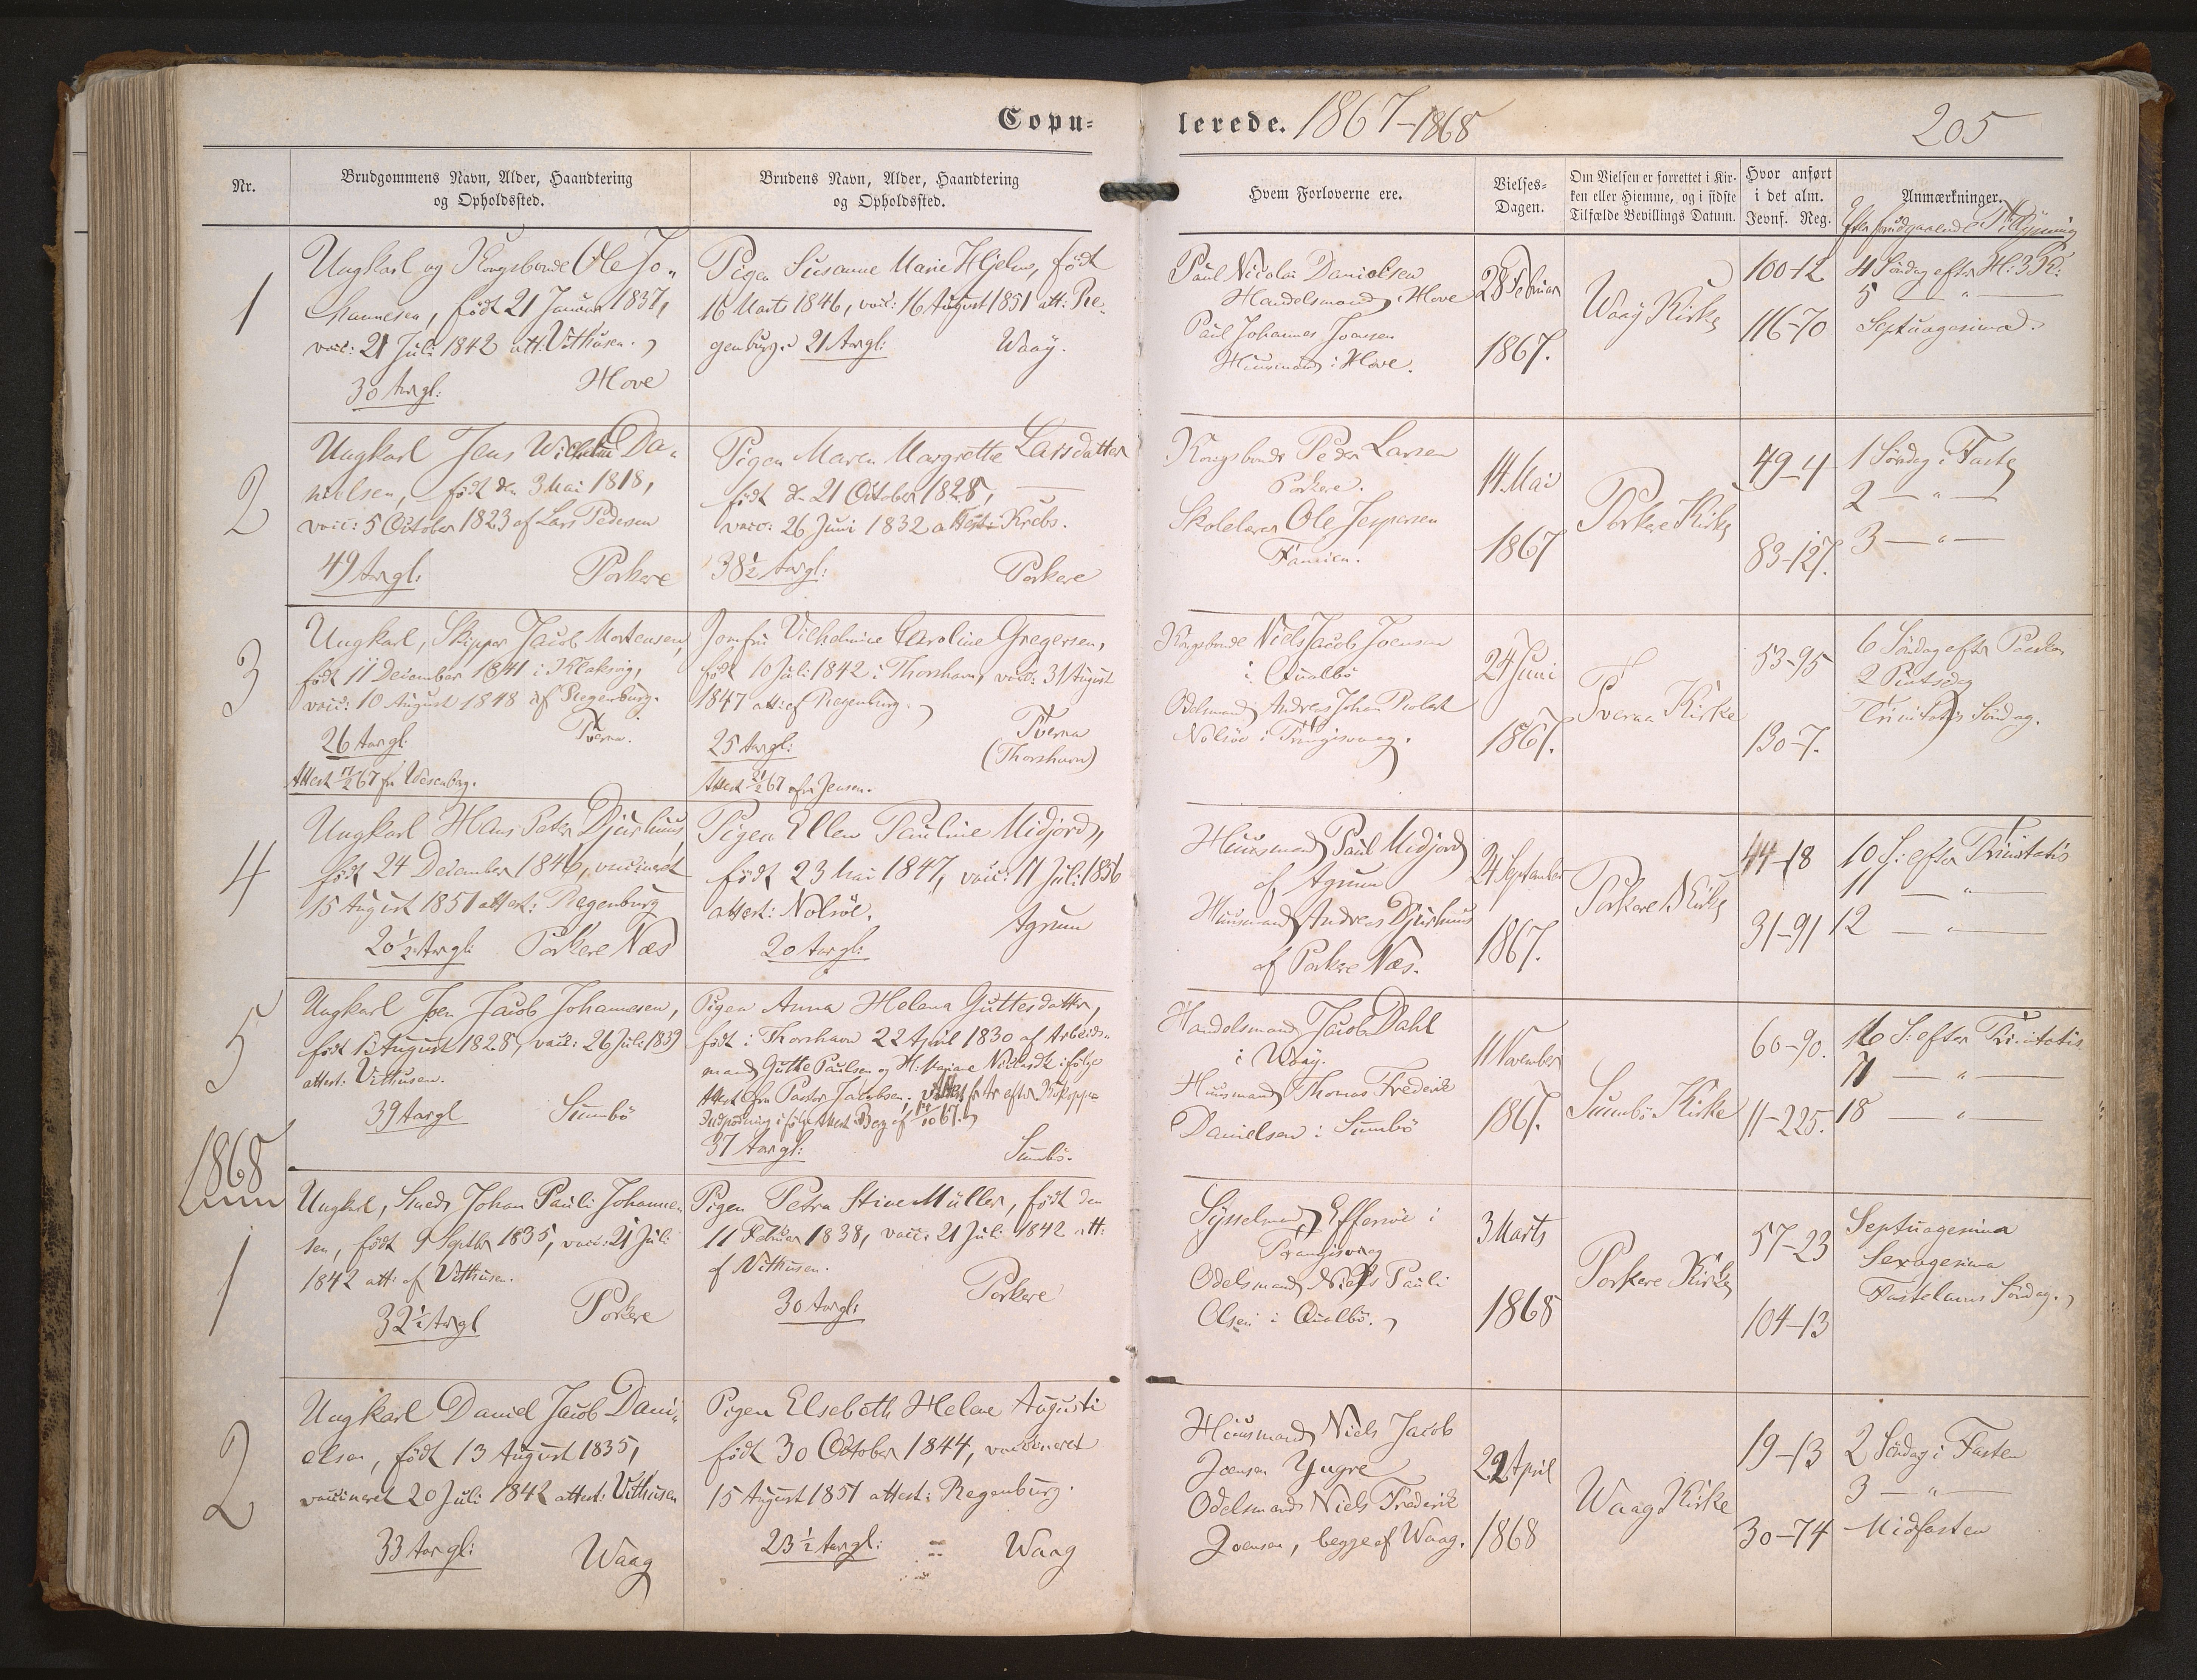 Copu=
lerede. 1867-1868
205
Nr.
Brudgommens Navn, Alder, Haandtering
og Opholdssted.
Brudens Navn, Alder, Haandtering
og Opholdssted.
Hvem Forloverne ere.
Vielses-
Dagen.
Om Vielsen er forrettet i Kir-
ken eller Hjemme, og i sidste
Tilfælde Bevillings Datum.
Hvor anført
i det alm.
Jevnf. Reg.
Anmærkninger.
Efter foregaaende Tillysning
1
Ungkarl og Kongsbonde Ole Jo-
hannesen, født 21 Januar 1837,
vacc: 21 Juli 1842 att: Vithusen.
30 Aar gl:
Hove
Pigen Susanne Marie Hjelm, født
16 Marts 1846, vacc: 16 August 1851 att: Re-
genburg. 21 Aar gl:
Waag.
Paul Nicolai Danielsen
Handelsmand i Hove
Paul Johannes Joensen
Huusmand i Hove.
28 Februar
1867.
Waag Kirke
100-12
116-70
4 Søndag efter H: 3 K:
5 — " —
Septuagesima
2
Ungkarl Jens Wilhelm Da-
nielsen, født den 3 Mai 1818,
vacc: 5 October 1823 af Lars Pedersen
49 Aar gl:
Porkere
Pigen Maren Margrethe Larsdatter
født d. 21 October 1828,
vacc: 26 Juni 1832 attest: Krebs.
38½ Aar gl:
Porkere
Kongsbonde Peder Larsen
Porkere.
Skolelærer Ole Jespersen
Famien.
14 Mai
1867
Porkere Kirke
49-4
83-127.
1 Søndag i Faste
2 — " —
3 — " —
3
Ungkarl, Skipper Jacob Mortensen,
født 11 December 1841 i Klaksvig,
vacc: 10 August 1848 af Regenburg.
26 Aar gl.
Tveraa.
Attest 17/2 67 fra Wesenberg.
Jomfru Vilhelmine Caroline Gregersen,
født 10 Juli 1842 i Thorshavn, vacc: 31 August
1847 att: af Regenburg.
25 Aar gl:
Tveraa
(Thorshavn)
Attest 21/2 67 fra Jensen.
Kongsbonde Niels Jacob Joensen
i Qualbø
Odelsmand Andreas Johan
Nolsøe i Trangisvaag.
24 Juni
1867.
Tveraa Kirke
53-95
130-7.
6 Søndag efter Paaske
2 Pintsedag
Trinitatis Søndag.
4
Ungkarl Hans Peter Djurhuus
født 24 December 1846, vaccineret
15 August 1851 attest: Regenburg
20½ Aar gl:
Porkere Næs
Pigen Ellen Pauline Midjord,
født 23 Mai 1847, vacc: 11 Juli 1856
attest: Nolsöe.
20 Aar gl:
Agrum
Huusmand Paul Midjord
af Agrum
Huusmand Andreas Djurhuus
af Porkere Næs.
24 September
1867.
Porkere Kirke
44-18
31-91
10 S: efter Trinitatis
11 — " —
12 — " —
5
Ungkarl Joen Jacob Johannesen,
født 13 August 1828, vacc: 26 Juli 1839
attest: Vithusen.
39 Aar gl
Sumbø
Pigen Anna Helena Guttesdatter,
født i Thorshavn 22 April 1830 af Arbeids-
mand Gutte Paulsen og H: Mariane Nielsdt: ifølge
Attest fra Pastor Jacobsen. efter Kokoppe
Indpodning ifølge Attest
37 Aar gl:
Sumbø.
Handelsmand Jacob Dahl
i Waag.
Huusmand Thomas Frederik
Danielsen i Sumbø
11 November
1867.
Sumbø Kirke
60-90.
11-225.
16 S: efter Trinitatis
17 — " —
18 — " —
1868
1
Ungkarl, Smed, Johan Pauli Johanne-
sen, født 9 Septbr 1835, vacc: 21 Juli
1842 att: af Vithusen.
32½ Aar gl
Porkere
Pigen Petra Stine Müller, født den
11 Februar 1838, vacc: 21 Juli 1842 att:
af Vithusen.
30 Aar gl:
Porkere
Sysselmand Effersöe i
Trangisvaag
Odelsmand Niels Pauli
Olsen i Qualbø.
3 Marts
1868
Porkere Kirke
57-23
104-13
Septuagesima
Sexagesima
Fastelavns Søndag.
2
Ungkarl Daniel Jacob Dani-
elsen, født 13 August 1835,
vaccineret 20 Juli 1842 attest: Vithusen
33 Aar gl:
Waag
Pigen Elsebeth Helene Augusti
født 30 October 1844, vaccineret
15 August 1851 attest: Regenburg.
23½ Aar gl:
Waag
Huusmand Niels Jacob
Joensen Yngre
Odelsmand Niels Frederik
Joensen, begge af Waag.
22 April
1868
Waag Kirke
19-13
30-74
2 Søndag i Fasten
3 — " —
Midfasten